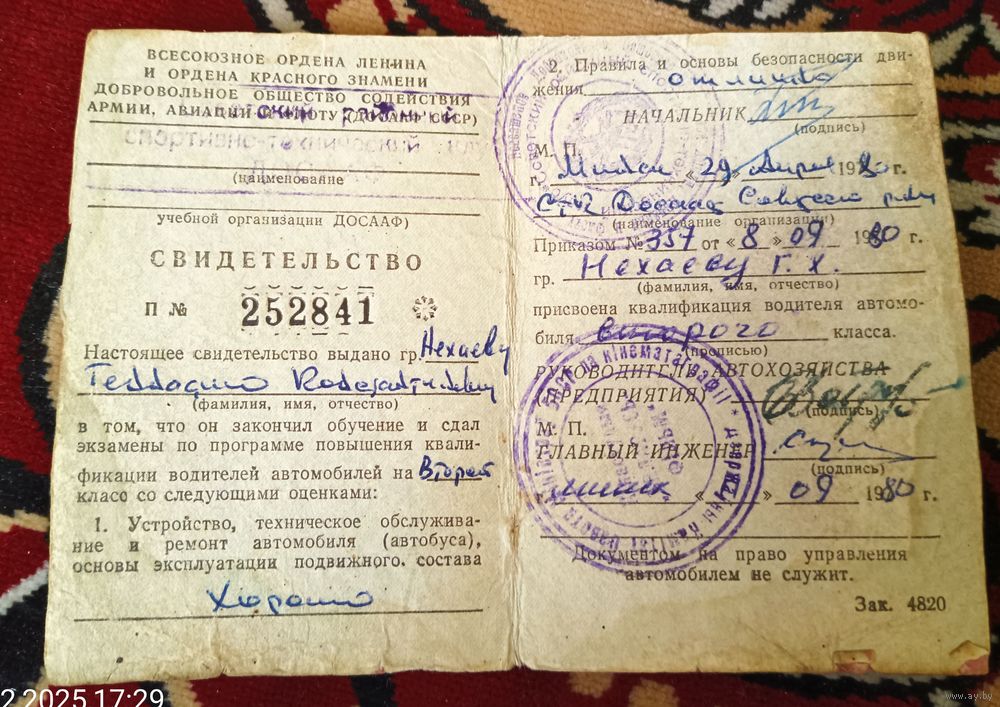 ВСЕСОЮЗНОЕ ОРДЕНА ЛЕНИНА
И ОРДЕНА КРАСНОГО ЗНАМЕНИ
ДОБРОВОЛЬНОЕ ОБЩЕСТВО СОДЕЙСТВИЯ
АРМИИ, АВИАЦИИ И ФЛОТУ (ДОСААФ СССР)
спортивно-технический
(наименование
учебной организации ДОСААФ)
СВИДЕТЕЛЬСТВО
П № 252841
Настоящее свидетельство выдано гр. Нехаеву
(фамилия, имя, отчество)
в том, что он закончил обучение и сдал
экзамены по программе повышения квали-
фикации водителей автомобилей на Второй
класс со следующими оценками:
1. Устройство, техническое обслужива-
ние и ремонт автомобиля (автобуса),
основы эксплуатации подвижного. состава
Хорошо
2. Правила и основы безопасности дви-
жения отлично
НАЧАЛЬНИК
(подпись)
М. П.
г. Минск «29» Апреля 1980 г.
СТК ДОСААФ Советского
(наименование организации)
Приказом № 357 от «8» 09 1980 г.
гр. Нехаеву Г. К.
(фамилия, имя, отчество)
присвоена квалификация водителя автомо-
биля второго класса.
(прописью)
РУКОВОДИТЕЛЬ АВТОХОЗЯЙСТВА
(ПРЕДПРИЯТИЯ)
(подпись)
М. П.
ГЛАВНЫЙ ИНЖЕНЕР
(подпись)
Минск « » 09 1980 г.
Документом на право управления
автомобилем не служит.
Зак. 4820
2.2025 17:29
www.ay.by